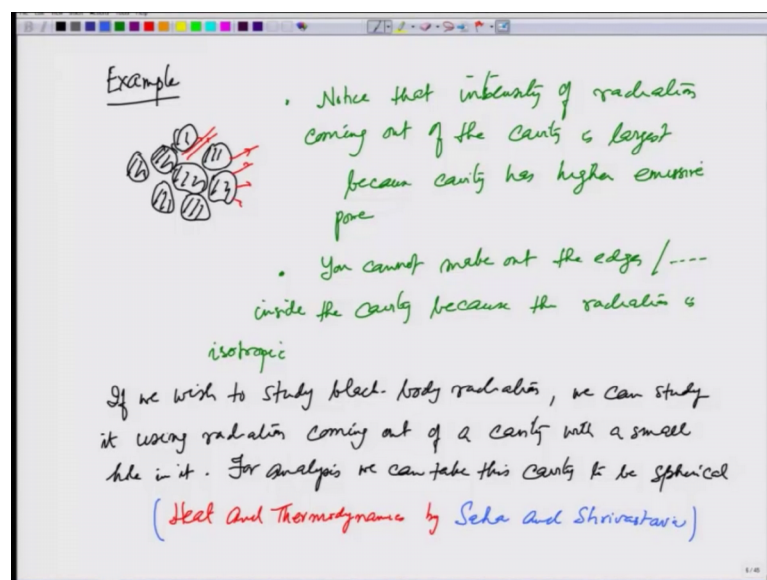 Example
• Notice that intensity of radiation
coming out of the cavity is largest
because cavity has higher emissive
powe
• You cannot make out the edges /----
inside the cavity because the radiation is
isotropic
If we wish to study black-body radiation, we can study
it using radiation coming out of a cavity with a small
hole in it. For analysis we can take this cavity to be spherical
(Heat and Thermodynamics by Saha and Shrivastava)
6/45